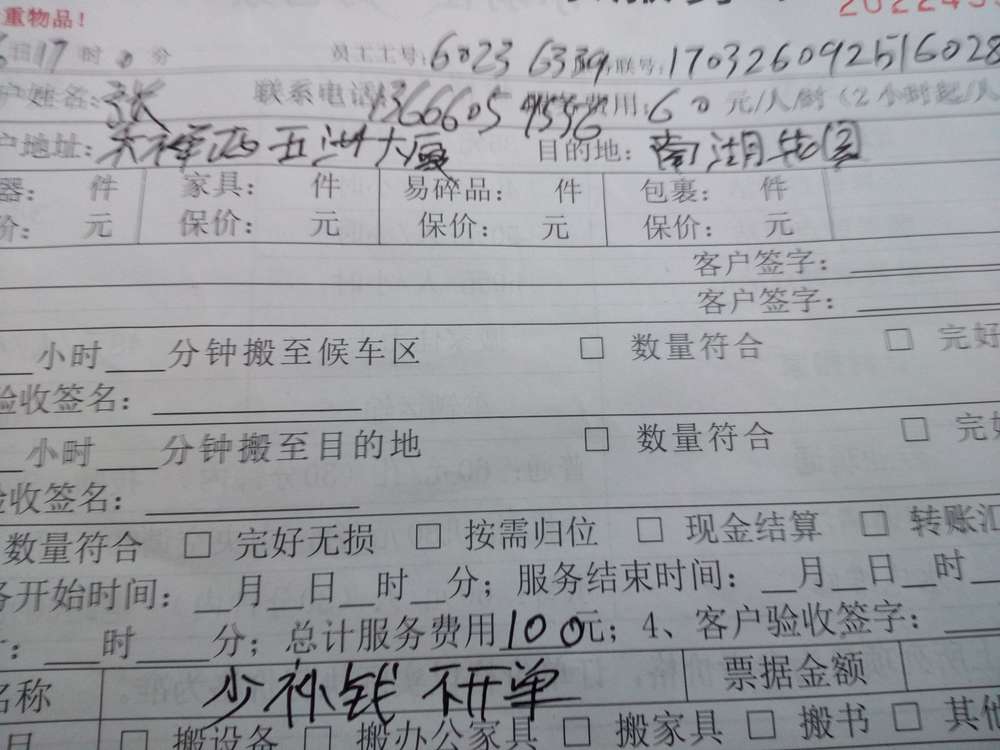 重物品！
202245
日17时0分 员工工号：6023 6339 联号：17032609251602
户姓名：张 联系电话：1366605 9556 费用：60元/人/时（2小时起/人
户地址：天祥西五洲大厦 目的地：南湖花园
器： 件 家具： 件 易碎品： 件 包裹： 件
价： 元 保价： 元 保价： 元 保价： 元
客户签字：
客户签字：
小时 分钟搬至候车区 □ 数量符合 □ 完好
验收签名：
小时 分钟搬至目的地 □ 数量符合 □ 完好
验收签名：
数量符合 □ 完好无损 □ 按需归位 □ 现金结算 □ 转账汇
务开始时间：__月__日__时__分；服务结束时间：__月__日__时
：__时__分；总计服务费用100元；4、客户验收签字：
名称 少补钱 不开单 票据金额
目 □ 搬设备 □ 搬办公家具 □ 搬家具 □ 搬书 □ 其他